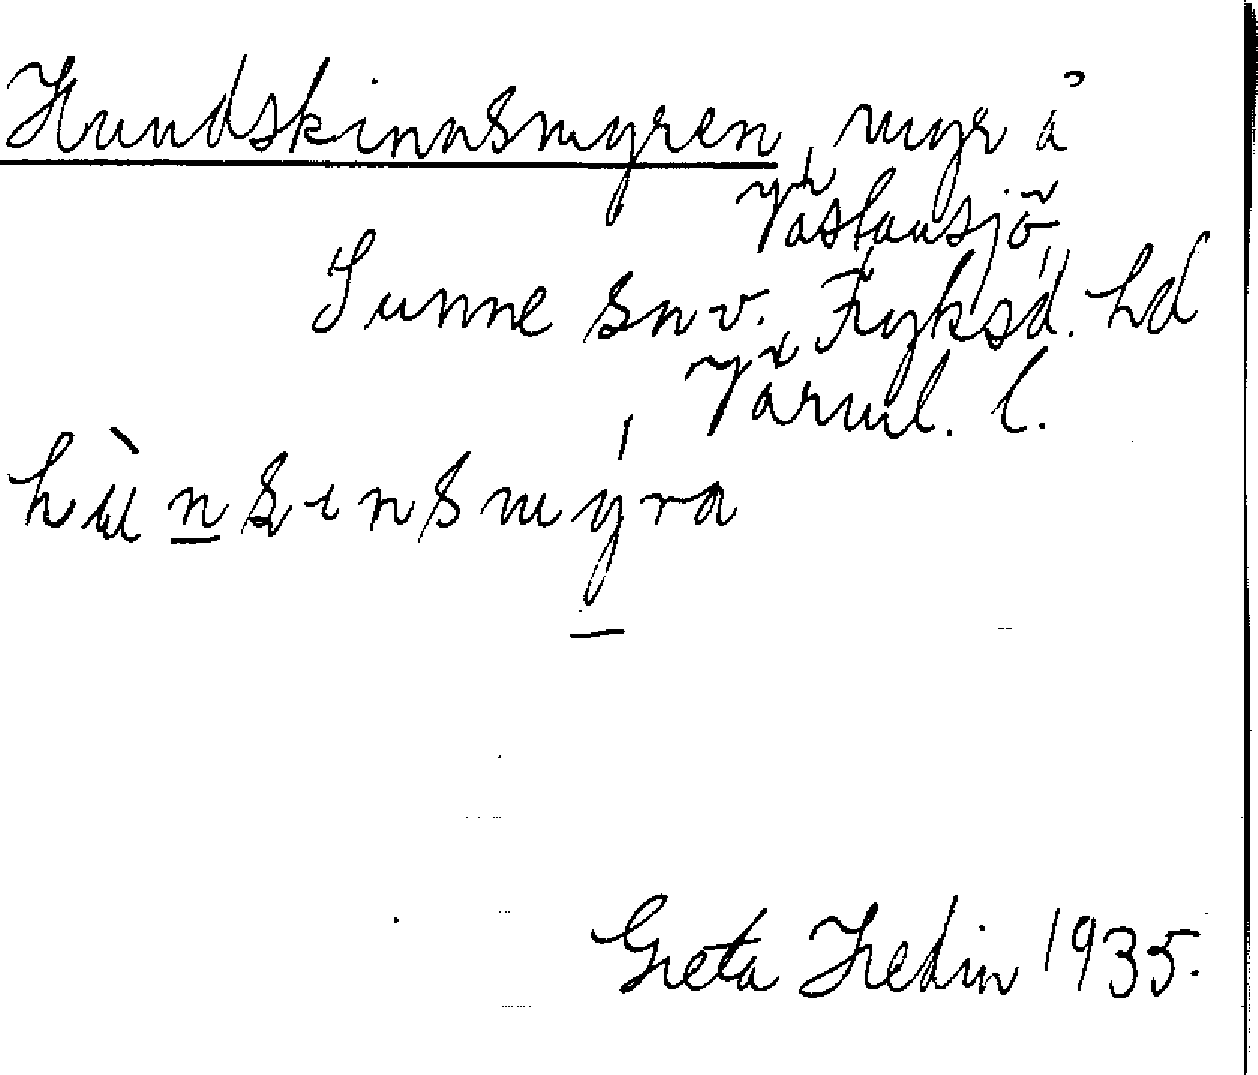 Hundskinnsmyren, myr å
Västansjö,
Sunne sn v. Fryksd. hd
Värml. l.
hùnsinsmýra
Greta Hedin 1935.